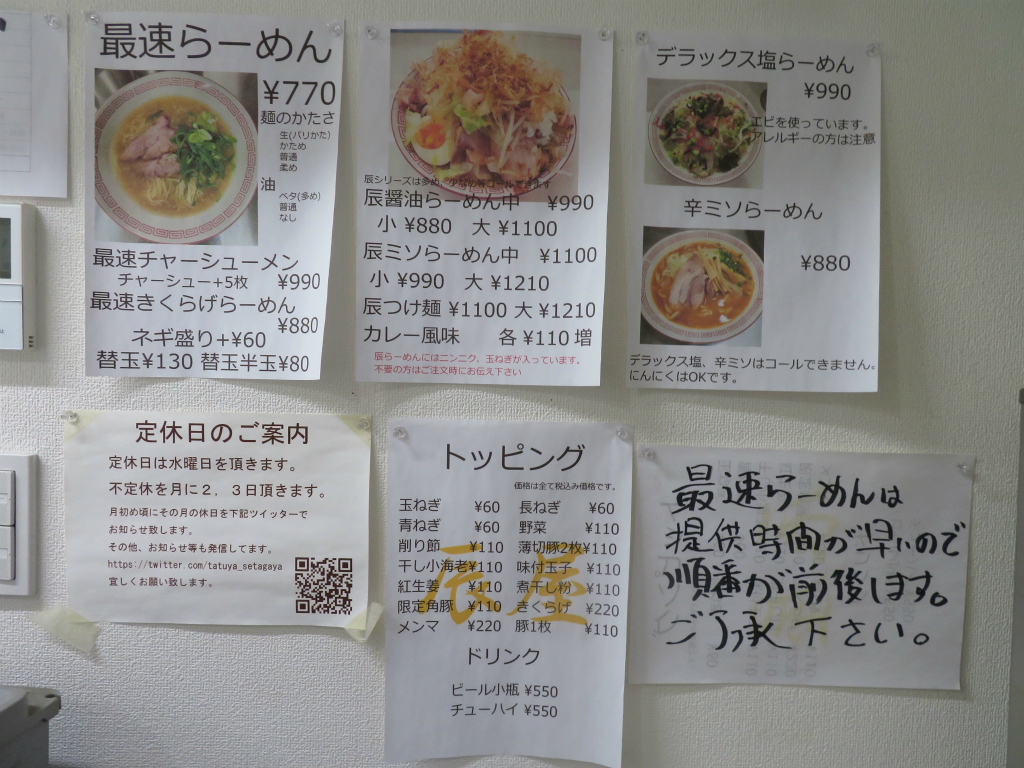 最速らーめん
¥770
麺のかたさ
生(バリかた)
かため
普通
柔め
油
ベタ(多め)
普通
なし
最速チャーシューメン
チャーシュー+5枚 ¥990
最速きくらげらーめん
¥880
ネギ盛り+¥60
替玉¥130 替玉半玉¥80
辰シリーズは多め、少なめ等コールできます
辰醤油らーめん中 ¥990
小 ¥880 大 ¥1100
辰ミソらーめん中 ¥1100
小 ¥990 大 ¥1210
辰つけ麺 ¥1100 大 ¥1210
カレー風味 各 ¥110 増
辰らーめんにはニンニク、玉ねぎが入っています。
不要の方はご注文時にお伝え下さい
デラックス塩らーめん
¥990
エビを使っています。
アレルギーの方は注意
辛ミソらーめん
¥880
デラックス塩、辛ミソはコールできません。
にんにくはOKです。
定休日のご案内
定休日は水曜日を頂きます。
不定休を月に2,3日頂きます。
月初め頃にその月の休日を下記ツイッターで
お知らせ致します。
その他、お知らせ等も発信してます。
https://twitter.com/tatuya_setagaya
宜しくお願い致します。
トッピング
価格は全て税込み価格です。
玉ねぎ ¥60 長ねぎ ¥60
青ねぎ ¥60 野菜 ¥110
削り節 ¥110 薄切豚2枚¥110
干し小海老¥110 味付玉子 ¥110
紅生姜 ¥110 煮干し粉 ¥110
限定角豚 ¥110 きくらげ ¥220
メンマ ¥220 豚1枚 ¥110
辰屋
ドリンク
ビール小瓶 ¥550
チューハイ ¥550
最速らーめんは
提供時間が早いので
順番が前後します。
ご了承下さい。